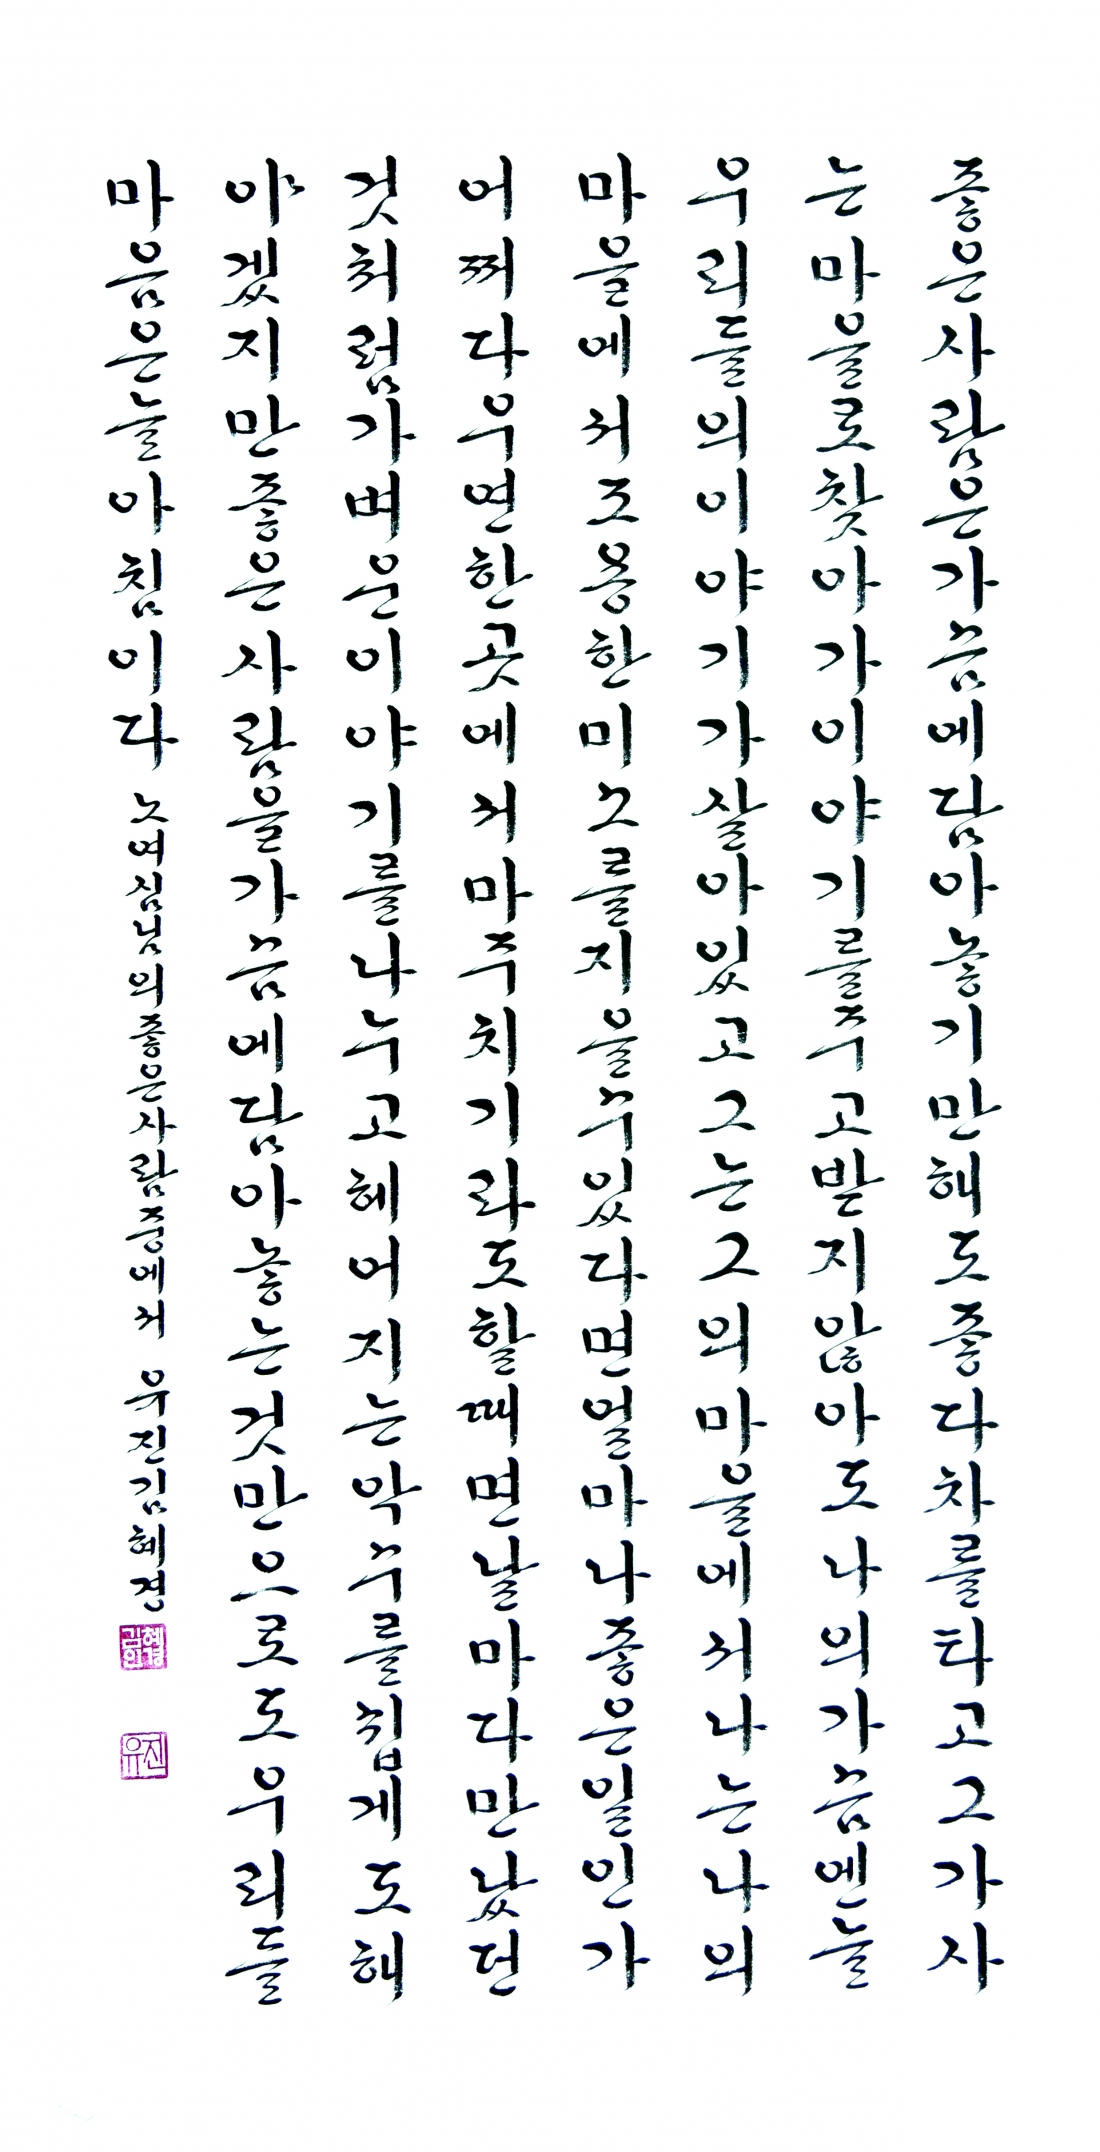 좋은사람은가슴에담아놓기만해도좋다차를타고그가사
는마을로찾아가이야기를주고받지않아도나의가슴엔늘
우리들의이야기가살아있고그는그의마을에서나는나의
마을에서조용한미소를지을수있다면얼마나좋은일인가
어쩌다우연한곳에서마주치기라도할때면날마다만났던
것처럼가벼운이야기를나누고헤어지는악수를쉽게도해
야겠지만좋은사람을가슴에담아놓는것만으로도우리들
마음은늘아침이다 노여심님의좋은사람중에서 유진김혜경
김혜경인
유진